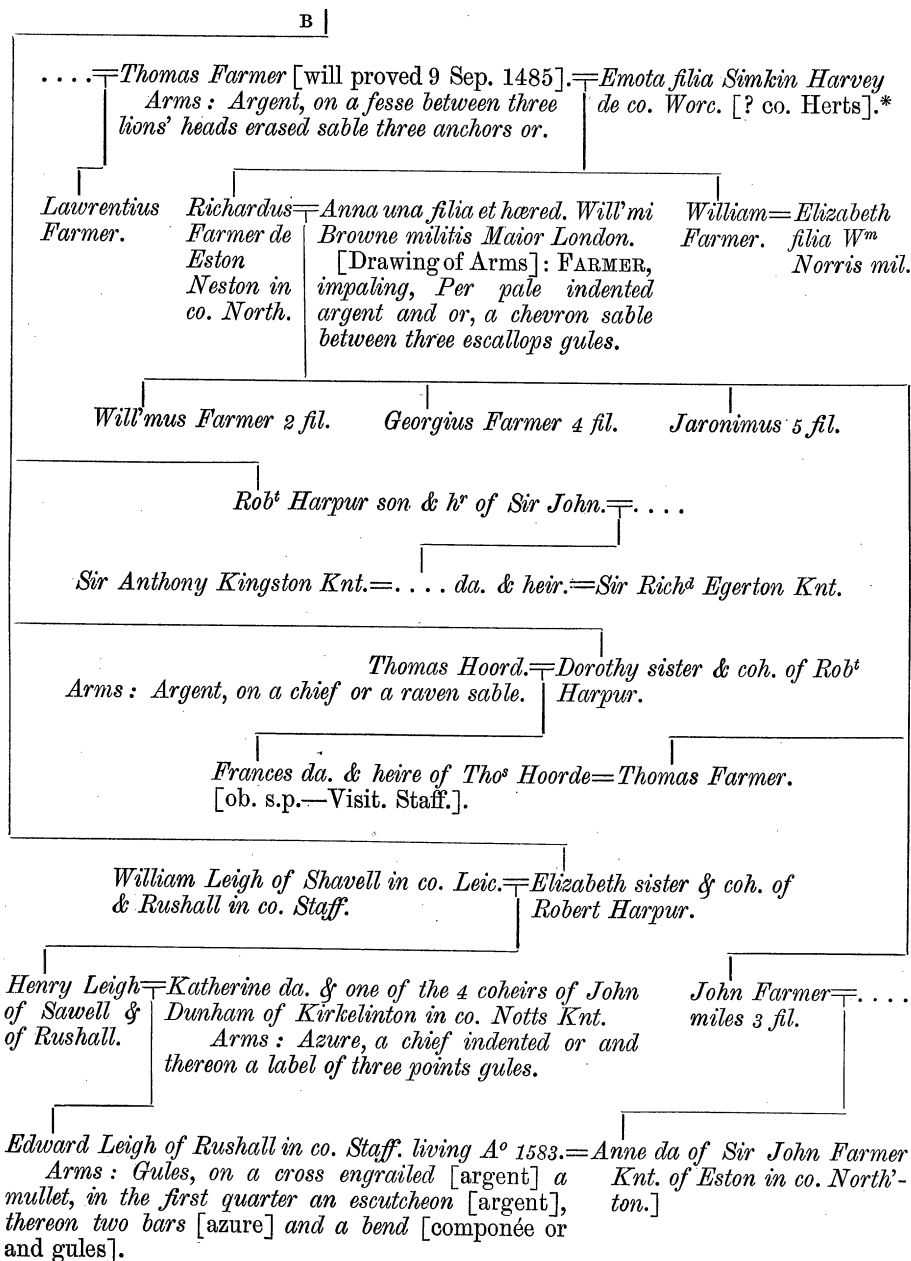 B
. . . . Thomas Farmer [will proved 9 Sep. 1485]. Emota filia Simkin Harvey
Arms : Argent, on a fesse between three
lions' heads erased sable three anchors or.
de co. Worc. [? co. Herts].*
Lawrentius
Farmer.
Richardus
Farmer de
Eston
Neston in
co. North.
Anna una filia et hæred. Will'mi
Browne militis Maior London.
[Drawing of Arms] : FARMER,
impaling, Per pale indented
argent and or, a chevron sable
between three escallops gules.
William=Elizabeth
Farmer. filia Wm
Norris mil.
Will'mus Farmer 2 fil. Georgius Farmer 4 fil. Jaronimus 5 fil.
Robt Harpur son & hr of Sir John. . . . .
Sir Anthony Kingston Knt.=. . . . da. & heir.=Sir Richd Egerton Knt.
Thomas Hoord. Dorothy sister & coh. of Robt
Arms : Argent, on a chief or a raven sable. Harpur.
Frances da. & heire of Thos Hoorde=Thomas Farmer.
[ob. s.p.—Visit. Staff.].
William Leigh of Shavell in co. Leic. Elizabeth sister & coh. of
& Rushall in co. Staff. Robert Harpur.
Henry Leigh
of Sawell &
of Rushall.
Katherine da. & one of the 4 coheirs of John
Dunham of Kirkelinton in co. Notts Knt.
Arms : Azure, a chief indented or and
thereon a label of three points gules.
John Farmer . . . .
miles 3 fil.
Edward Leigh of Rushall in co. Staff. living Ao 1583.=Anne da of Sir John Farmer
Arms : Gules, on a cross engrailed [argent] a
mullet, in the first quarter an escutcheon [argent],
thereon two bars [azure] and a bend [componée or
and gules].
Knt. of Eston in co. North'-
ton.]